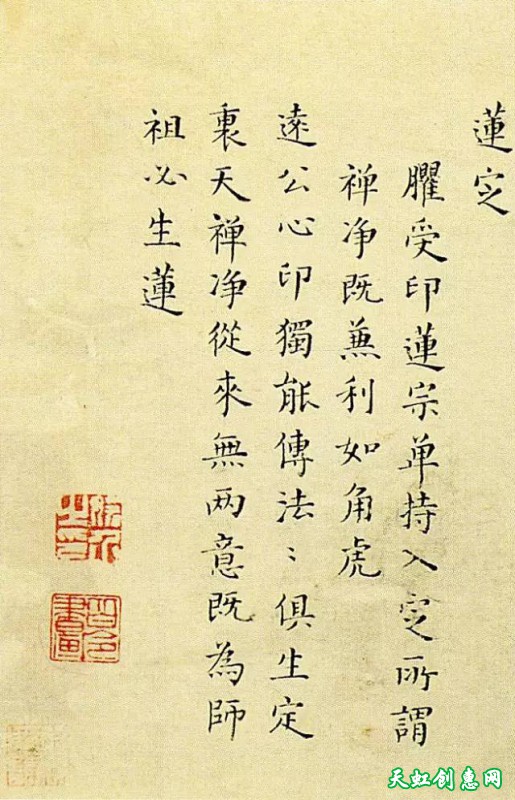 蓮㝎
臞受印蓮宗单持入㝎所謂
禅净既兼利如角虎
遠公心印獨能傳法〻俱生定
裏天禅净從來無两意既為師
祖必生蓮
天虹创惠网